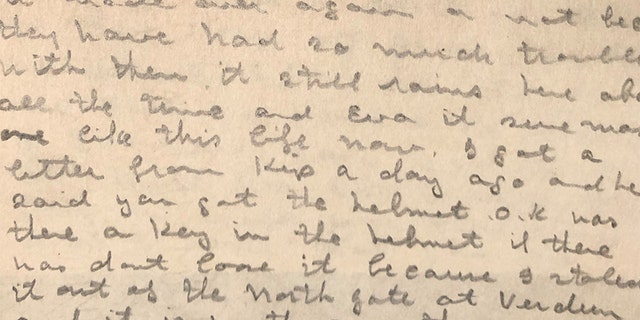 made over again a not be
they have had so much trouble
with them it still rains here abo
all the time and Eva it sure ma
one like this life now. I got a
letter from Kip a day ago and he
said you got the helmet O.K was
there a key in the helmet if there
was dont loose it because I stolen
it out of the North gate at Verdun